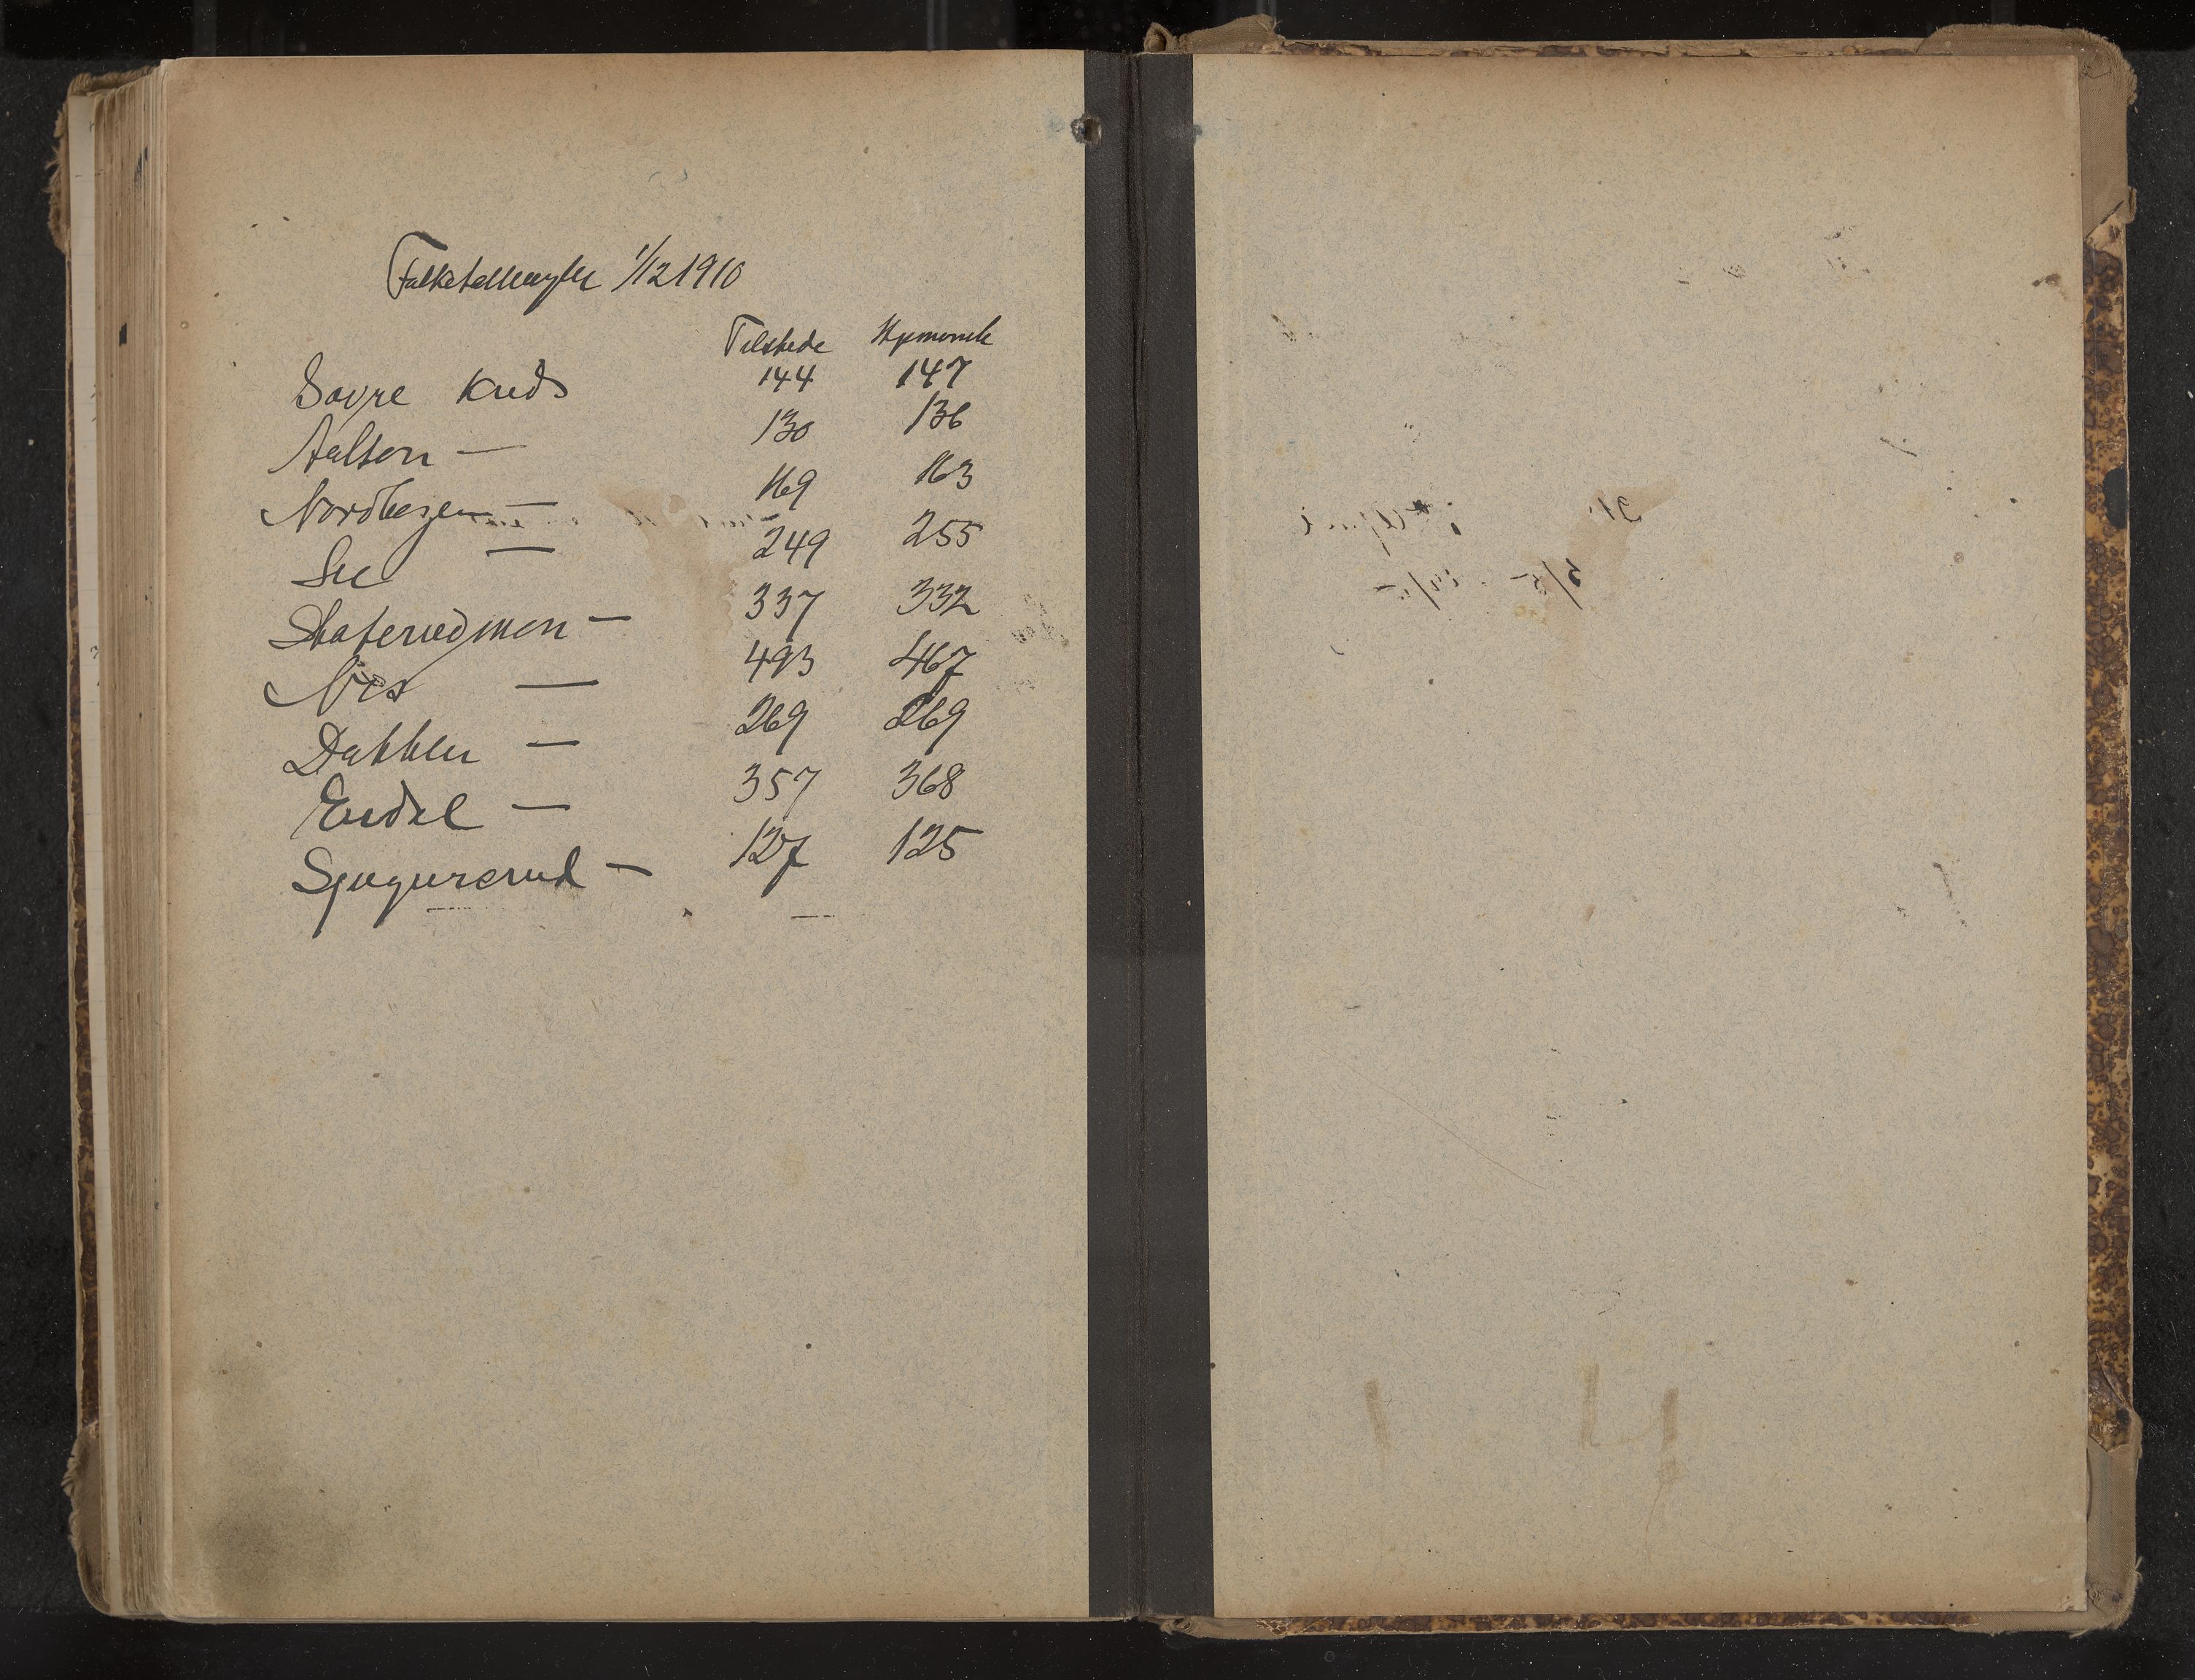 Folketellingen 1/12 1910
Tilstede Hjemmeh
Søvre Kreds 144 147
Aalton — 130 136
Nordbergen — 169 163
Lie — 249 255
Skatervedmoen — 337 332
Nes — 493 467
Dokken — 269 269
Eidal — 357 368
Sjugurerud — 127 125